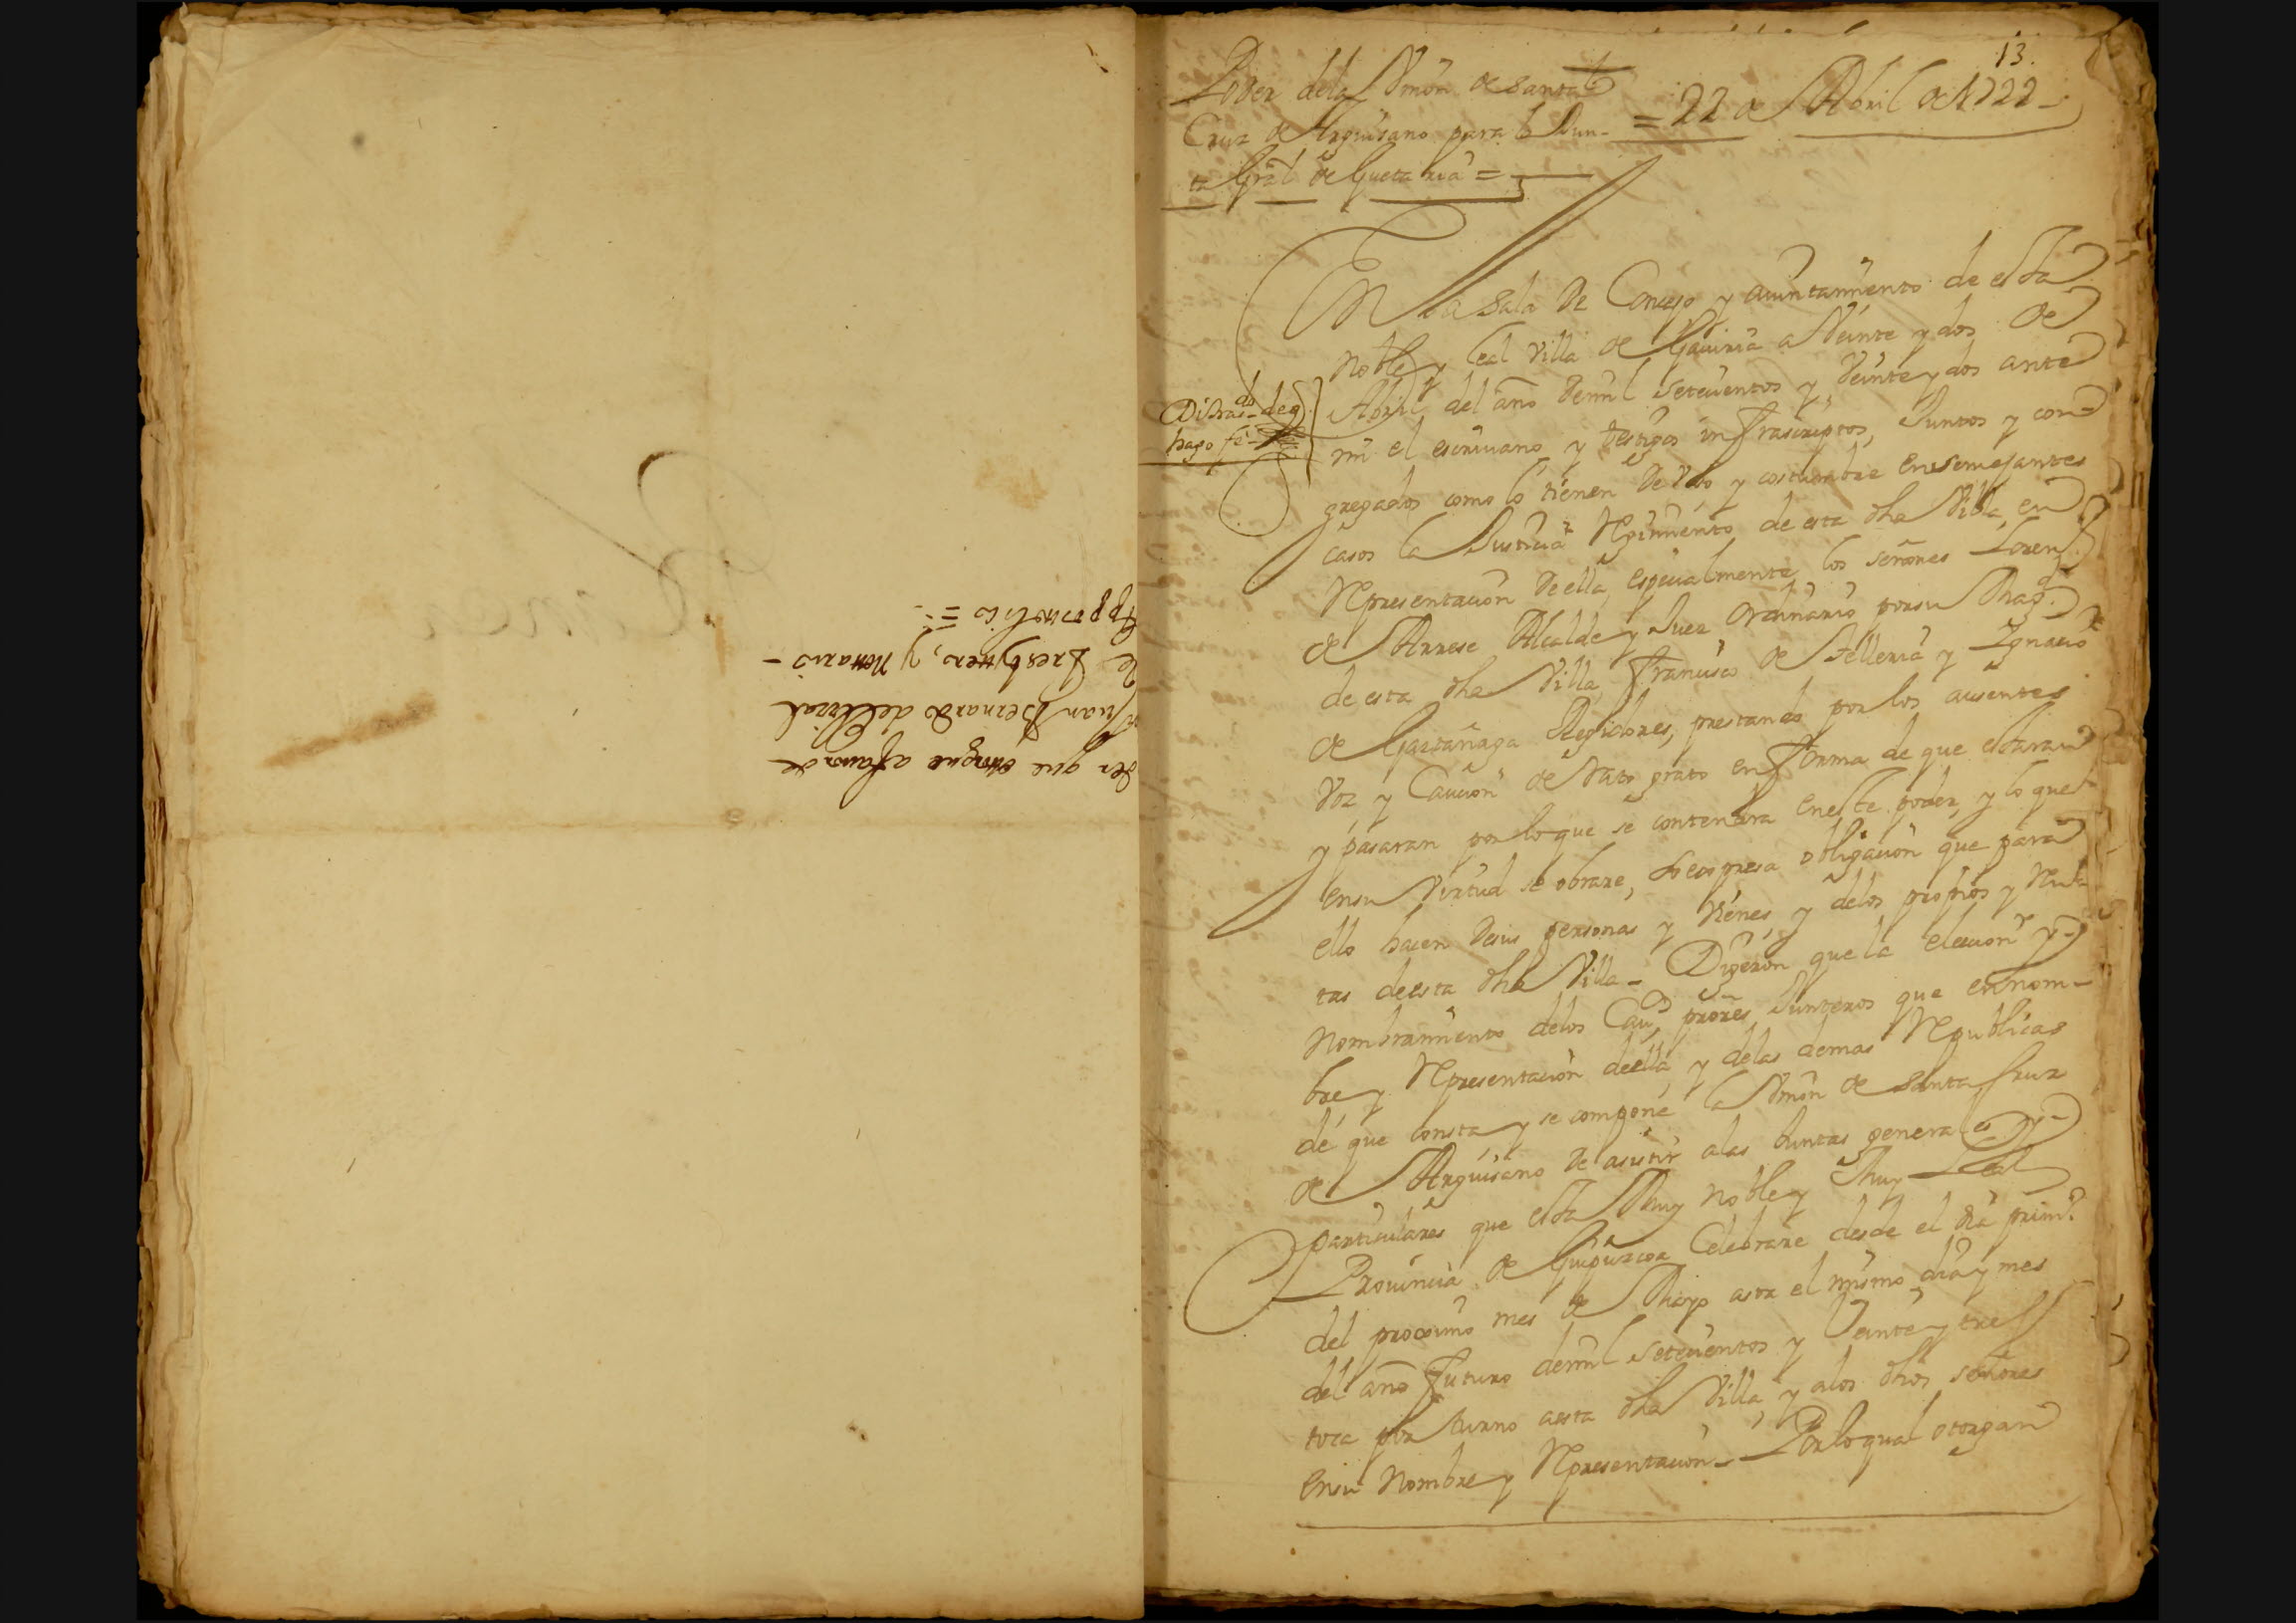 der que otorgue a favor de
Juan Bernardo del
Presbytero, y Nottario -
Appostolico =
13.
Poder dela Vnion de Santa
Cruz de Arguisano para la Jun-
ta Gral de Guetaria =
= 22 de Abril de 1722 -
En la Sala de Concejo y aiuntamiento de esta
noble y leal Villa de Gauiria a Veinte y dos de
Abril del año de mil setecientos y Veinte y dos ante
mi el escriuano y testigos infrascriptos, Juntos y con-
gregados como lo tienen de Vso y costumbre en semejantes
casos la Justicia y Rejimiento de esta dha Villa, en
Representacion de ella, especialmente los señores Loren
de Arrese Alcalde y Juez Ordinario por su Magd
de esta dha Villa, Francisco de Telleria y Ignacio
de Gastañaga Rejidores, prestando por los ausentes
Voz y Caucion de rato grato en forma de que estaran
y pasaran por lo que se contendra en este poder, y lo que
en su Virtud se obrare, so expresa obligacion que para
ello hacen de sus personas y Vienes, y delos propios y Ren-
tas de esta dha Villa - Dijeron que la eleccion y
Nombramiento delos Cauos prores Junteros que en nom-
bre y Representacion de ella, y delas demas Republicas
de que consta y se compone la Vnion de Santa Cruz
de Arguisano de asistir a las Juntas generales y
Particulares que esta Muy noble y Muy Leal
Prouincia de Guipuzcoa Celebrare desde el dia prim
del proximo mes de Mayo asta el mismo dia y mes
del año futuro de mil setecientos y Veinte y tres
toca por turno a esta dha Villa, y a los dhos señores
en su Nombre y Representacion - Por lo qual otorgan
hago fe